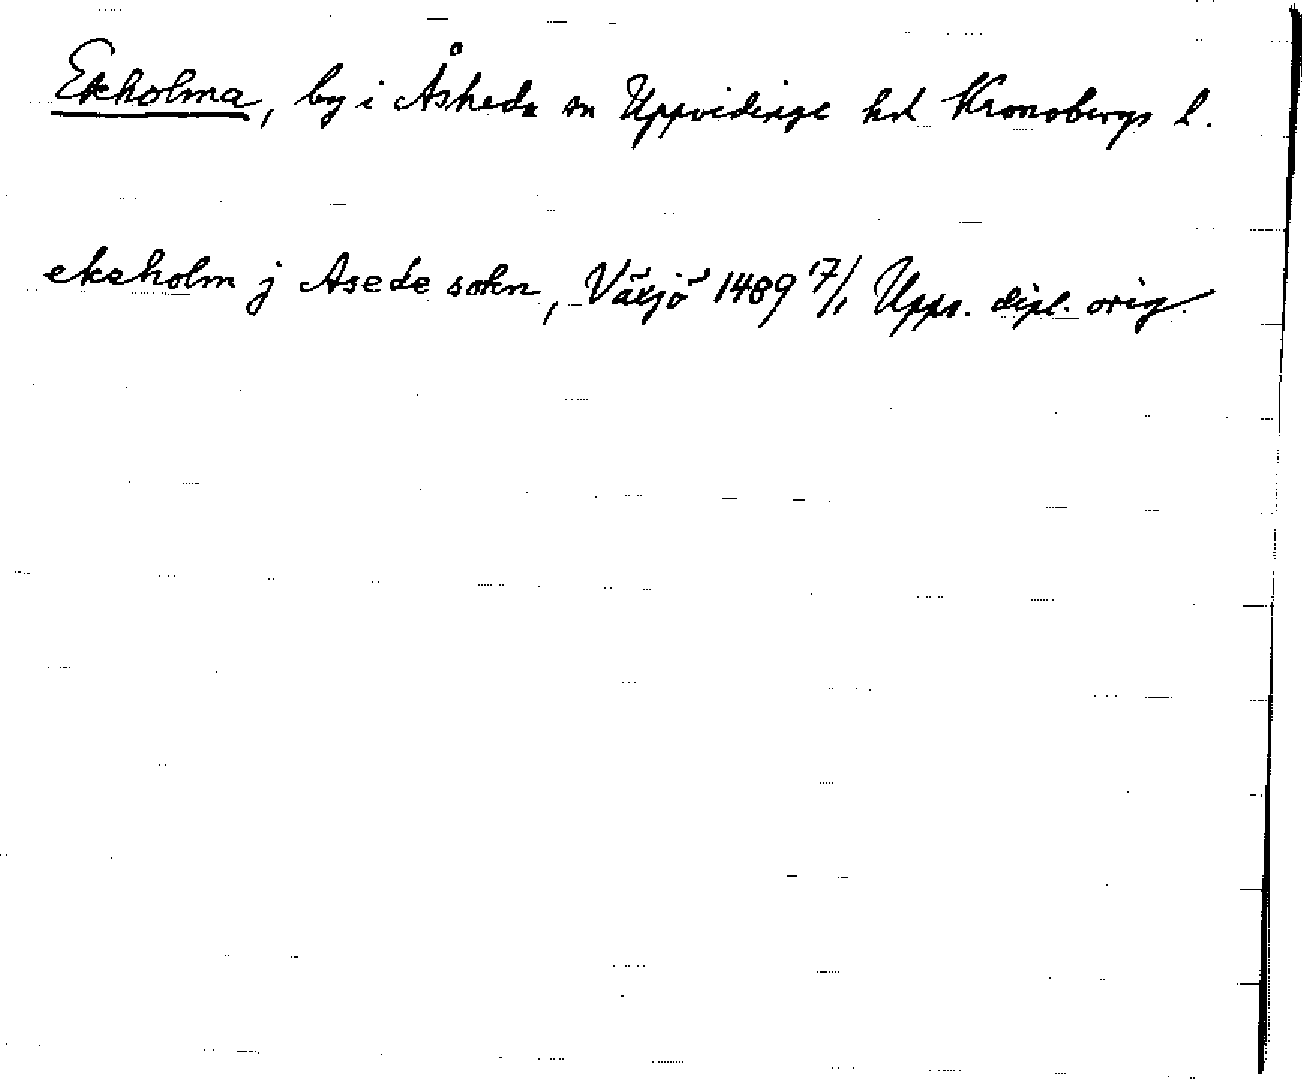 Ekholma, by i Åsheda sn Uppvidinge hd Kronobergs l.
ekeholm j Asede sokn, Växjö 1489 7/1 Upps. dipl. orig.